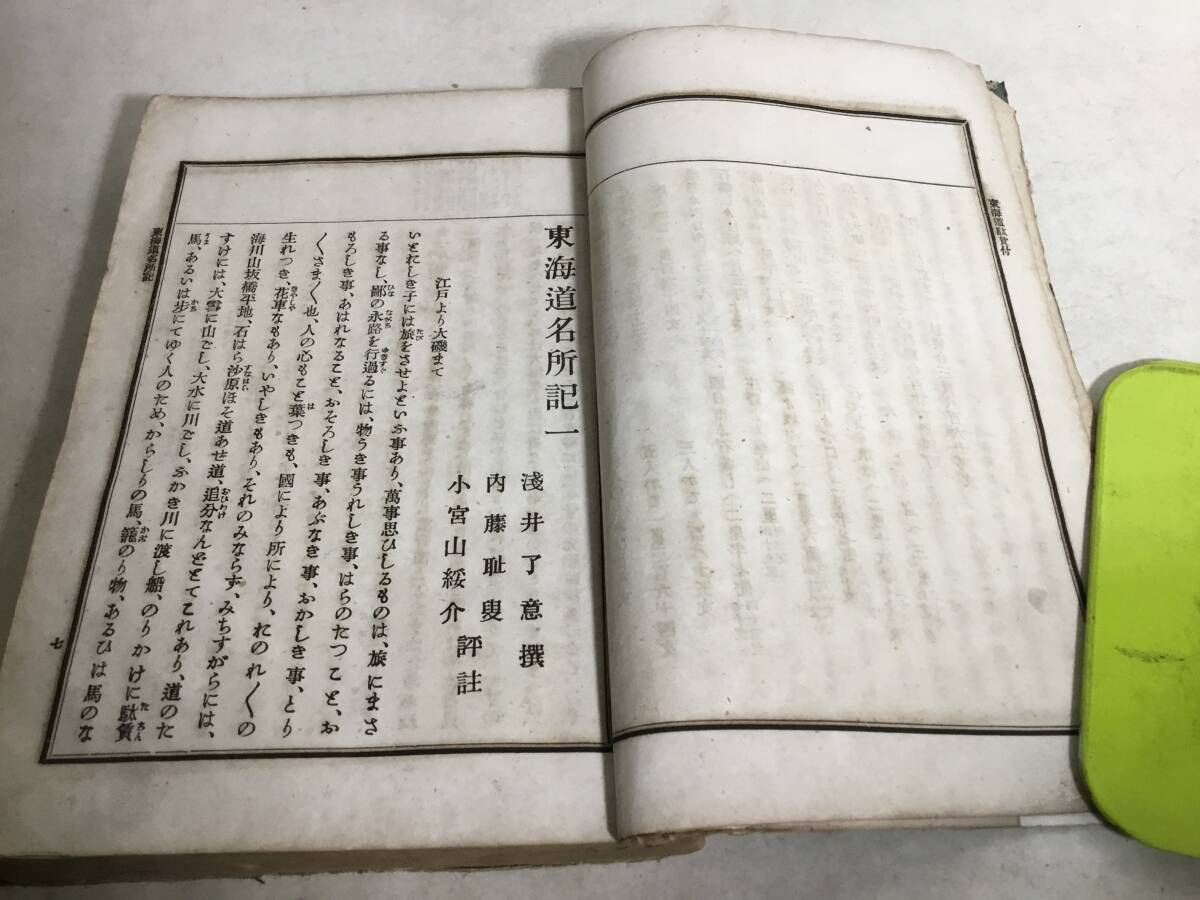 東海道駄賃付
東海道名所記一
淺井了意撰
内藤耻叟
小宮山綏介
評註
江戸より大磯まて
いとれしき子には旅をさせよといふ事あり、萬事思ひしるものは、旅にまさ
る事なし、鄙の永路を行過るには、物うき事うれしき事、はらのたつこと、お
もろしき事、あはれなること、おそろしき事、あぶなき事、おかしき事、とり
〱さま〱也、人の心もこと葉つきも、國により所により、れのれ〱の
生れつき、花車なもあり、いやしきもあり、それのみならす、みちすがらには、
海川山坂橋平地、石はら沙原ほそ道あせ道、追分なんどとてこれあり、道のた
すけには、大雪に山ごし、大水に川ごし、ふかき川に渡し船、のりかけに駄賃
馬、あるいは歩にてゆく人のため、からしりの馬、籠のり物、あるひは馬のな
東海道名所記
七